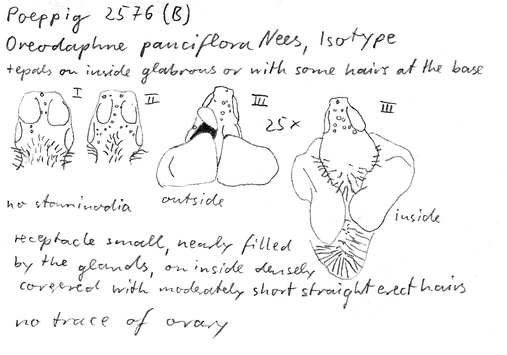 Poeppig 2576 (B)
Oreodaphne pauciflora Nees, Isotype
tepals on inside glabrous or with some hairs at the base
I II III 25x III
no staminodia outside inside
receptacle small, nearly filled
by the glands, on inside densely
covered with moderately short straight erect hairs
no trace of ovary